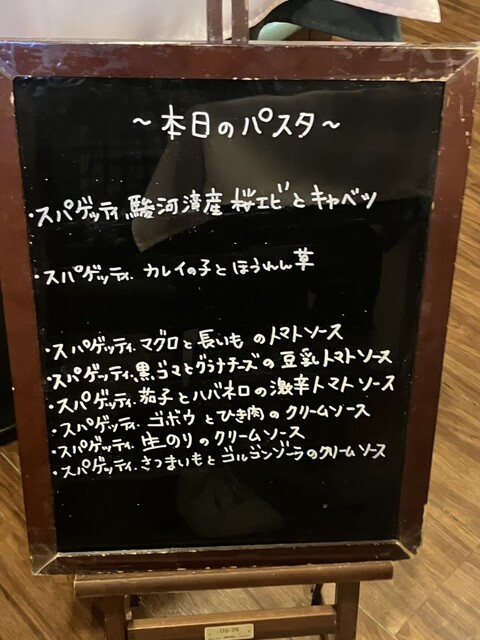 ～本日のパスタ～
・スパゲッティ 駿河湾産 桜エビとキャベツ
・スパゲッティ. カレイの子とほうれん草
・スパゲッティ. マグロと長いものトマトソース
・スパゲッティ. 黒ゴマとグラナチーズの豆乳トマトソース
・スパゲッティ. 茄子とハバネロの激辛トマトソース
・スパゲッティ. ゴボウとひき肉のクリームソース
・スパゲッティ. 生のりのクリームソース
・スパゲッティ. さつまいもとゴルゴンゾーラのクリームソース